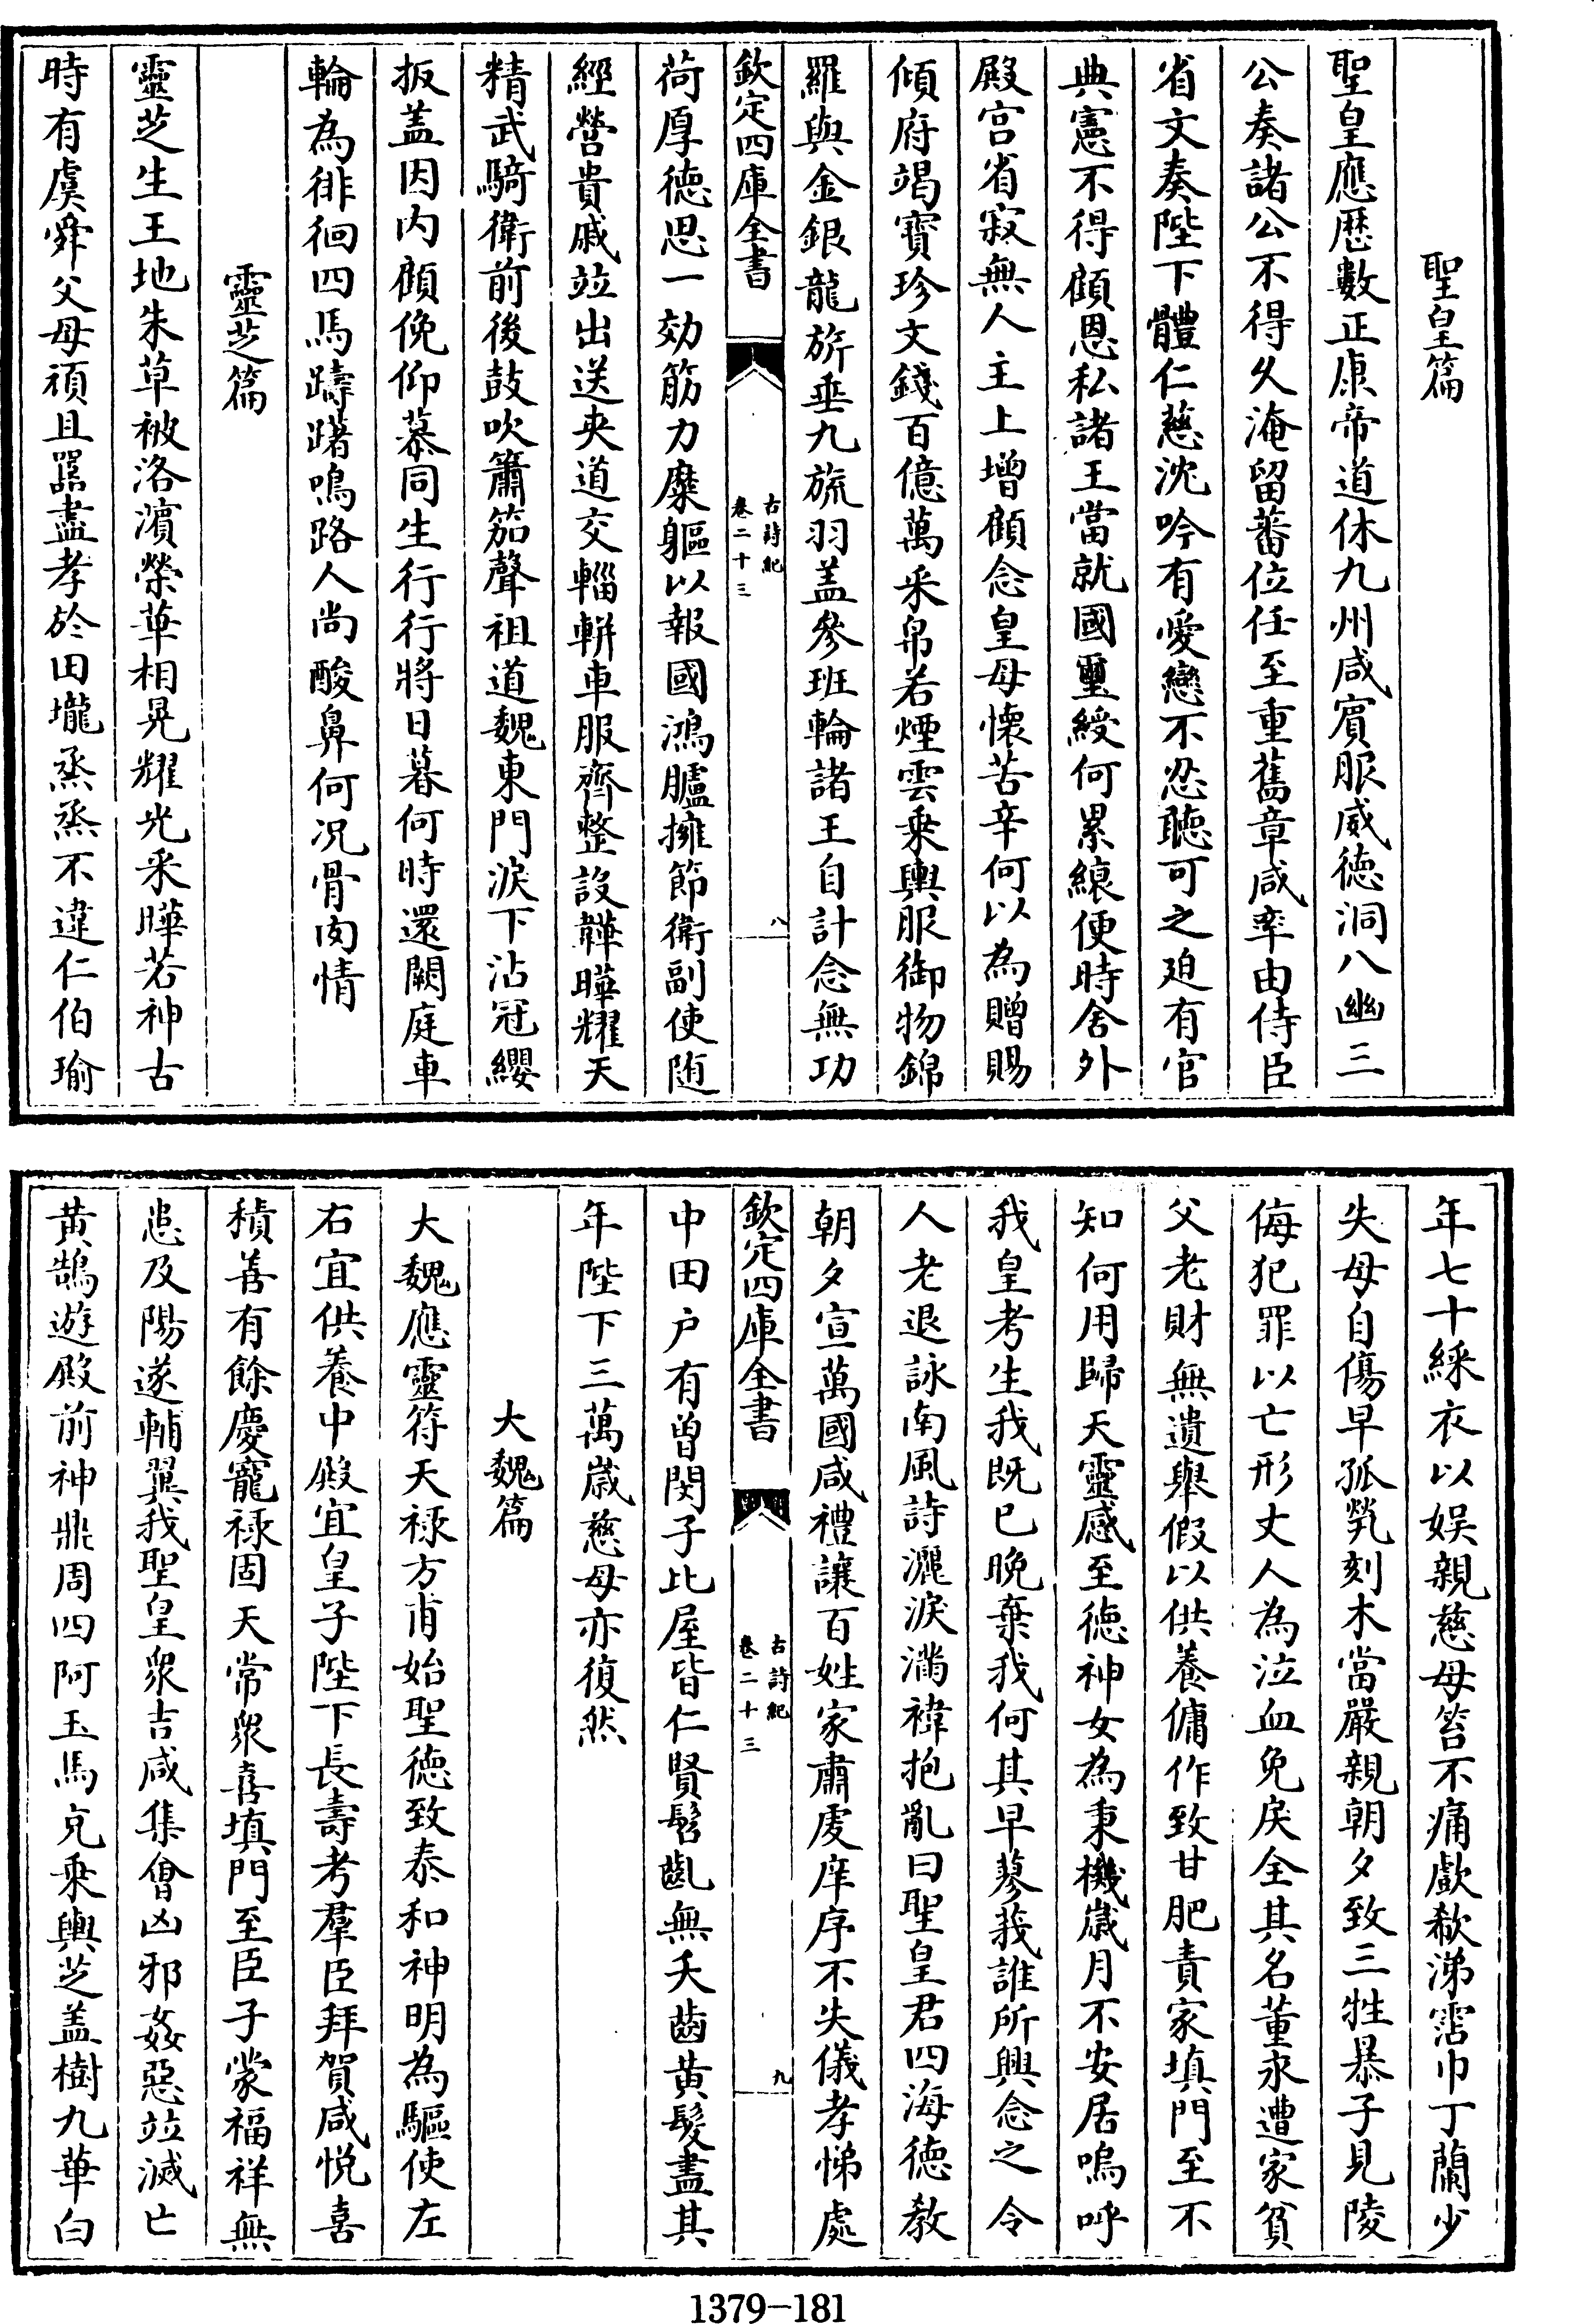 聖皇篇
聖皇應歴數正康帝道休九州咸賓服威徳洞八幽三
公奏諸公不得久淹留蕃位任至重舊章咸率由侍臣
省文奏陛下體仁慈沈吟有愛戀不忍聽可之廹有官
典憲不得顧恩私諸王當就國璽綬何累縗便時舍外
殿宫省寂無人主上增顧念皇母懐苦辛何以為贈賜
傾府竭寶珍文錢百億萬采帛若煙雲乗輿服御物錦
羅與金銀龍旂垂九旒羽盖參班輪諸王自計念無功
欽定四庫全書
古詩紀
卷二十三
八
荷厚徳思一効筋力糜軀以報國鴻臚擁節衛副使随
經營貴戚竝出送夾道交輜軿車服齊整設韡曄耀天
精武騎衛前後鼓吹簫笳聲祖道魏東門淚下沾冠纓
扳盖因内顧俛仰慕同生行行將日暮何時還闕庭車
輪為徘徊四馬躊躇鳴路人尚酸鼻何况骨肉情
靈芝篇
靈芝生王地朱草被洛濵榮華相晃耀光采曄若神古
時有虞舜父母頑且嚚盡孝於田壠烝烝不違仁伯瑜
年七十綵衣以娱親慈母笞不痛歔欷涕霑巾丁蘭少
失母自傷早孤煢刻木當嚴親朝夕致三牲暴子見陵
侮犯罪以亡形丈人為泣血免戾全其名董永遭家貧
父老財無遺舉假以供養傭作致甘肥責家填門至不
知何用歸天靈感至徳神女為秉機嵗月不安居嗚呼
我皇考生我既已晩棄我何其早蓼莪誰所興念之令
人老退詠南風詩灑淚滿褘抱亂曰聖皇君四海徳教
朝夕宣萬國咸禮讓百姓家肅䖍庠序不失儀孝悌處
欽定四庫全書
古詩紀
卷二十三
九
中田户有曾閔子比屋皆仁賢髫齓無夭齒黄髮盡其
年陛下三萬嵗慈母亦復然
大魏篇
大魏應靈符天禄方甫始聖徳致泰和神明為驅使左
右宜供養中殿宜皇子陛下長壽考羣臣拜賀咸悦喜
積善有餘慶寵禄固天常衆喜填門至臣子蒙福祥無
患及陽遂輔翼我聖皇衆吉咸集會凶邪姦惡竝滅亡
黄鵠遊殿前神鼎周四阿玉馬充乗輿芝盖樹九華白
1379-181